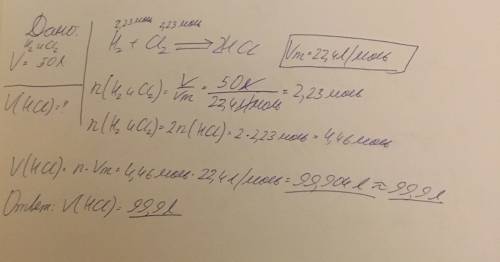 Дано:
H₂ и Cl₂
V = 50л
V(HCl)=?
2,23 моль 2,23 моль
H₂ + Cl₂ ⟹ 2HCl
Vm = 22,4л/моль
n(H₂ и Cl₂) = V/Vm = 50л/22,4л/моль = 2,23 моль
n(H₂ и Cl₂) = 2n(HCl) = 2·2,23 моль = 4,46 моль
V(HCl) = n·Vm = 4,46 моль · 22,4л/моль = 99,904л ≈ 99,9л
Ответ: V(HCl) = 99,9л